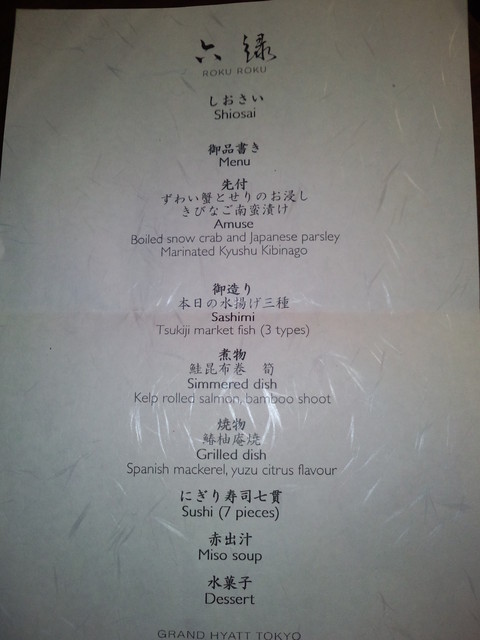 六緑
ROKU ROKU
しおさい
Shiosai
御品書き
Menu
先付
ずわい蟹とせりのお浸し
きびなご南蛮漬け
Amuse
Boiled snow crab and Japanese parsley
Marinated Kyushu Kibinago
御造り
本日の水揚げ三種
Sashimi
Tsukiji market fish (3 types)
煮物
鮭昆布巻　筍
Simmered dish
Kelp rolled salmon, bamboo shoot
焼物
鰆柚庵焼
Grilled dish
Spanish mackerel, yuzu citrus flavour
にぎり寿司七貫
Sushi (7 pieces)
赤出汁
Miso soup
水菓子
Dessert
GRAND HYATT TOKYO